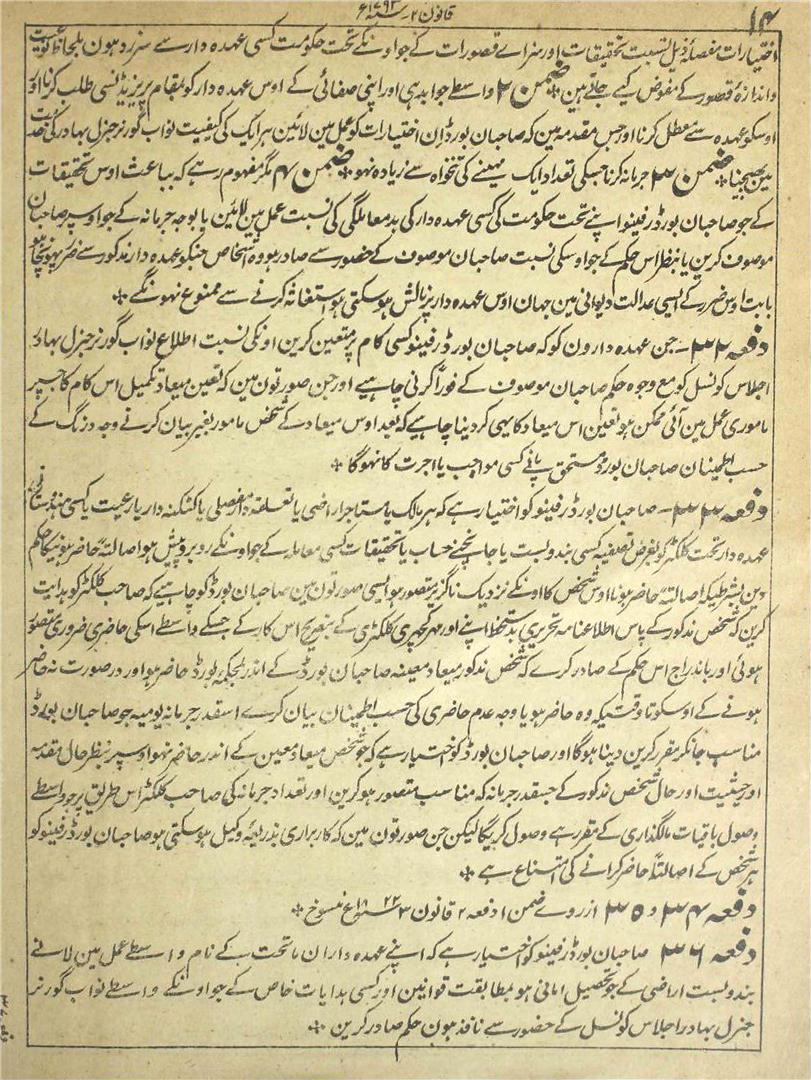 ۱۴
قانون ۲ سنہ ۱۷۹۳ ع
اختیارات مفصلۂ ذیل نسبت تحقیقات اور سزاے قصورات کے جو اونکے تحت حکومت کسی عہدہ دار سے سرزد ہون بلحاظ نوعیت
و اندازۂ قصور کے مفوض کیے جاتے ہین * ضمن ۲ واسطے جوابدہی اور اپنی صفائی کے اوس عہدہ دار کو بمقام پریزیڈنسی طلب کرنا اور
اوسکو عہدہ سے معطل کرنا اور جس مقدمہ مین کہ صاحبان بورڈ ان اختیارات کو عمل مین لائین ہر ایک کی کیفیت نواب گورنر جنرل بہادر کی خدمت
مین بھیجنا * ضمن ۳ جرمانہ کرنا جسکی تعداد ایک مہینے کی تنخواہ سے زیادہ نہو * ضمن ۴ مگر مفہوم رہے کہ بباعث اوس تحقیقات
کے جو صاحبان بورڈ رفینیو اپنے تحت حکومت کی کسی عہدہ دار کی بدمعاملگی کی نسبت عمل مین لائین یا بوجہ جرمانہ کے جو اوسپر صاحبان
موصوف کرین یا بنظر اس حکم کے جو اوسکی نسبت صاحبان موصوف کے حضور سے صادر ہو وہ اشخاص جنکو عہدہ دار مذکور سے ضرر پہونچا ہو
بابت اوس ضرر کے ایسی عدالت دیوانی مین جہان اوس عہدہ دار پر نالش ہو سکتی ہو استغاثہ کرنے سے ممنوع نہونگے *
دفعہ ۳۲ ـ جن عہدہ دارون کو کہ صاحبان بورڈ رفینیو کسی کام پر متعین کرین اونکی نسبت اطلاع نواب گورنر جنرل بہادر
اجلاس کونسل کو مع وجوہ حکم صاحبان موصوف کے فوراً کرنی چاہیے اور جن صورتون مین کہ تعین میعاد تکمیل اس کام کا جسپر
ماموری عمل مین آئی ممکن ہو تعین اس میعاد کا بھی کر دینا چاہیے کہ بعد اوس میعاد کے شخص مامور بغیر بیان کرنے وجہ درنگ کے
حسب اطمینان صاحبان بورڈ مستحق پانے کسی مواجب یا اجرت کا نہوگا *
دفعہ ۳۳ ـ صاحبان بورڈ رفینیو کو اختیار ہے کہ ہر مالک یا مستاجر اراضی یا تعلقہ دار مفصلی یا کٹکنہ دار یا رعیت یا کسی ہندوستانی
عہدہ دار تحت کلکٹر کو بغرض تصفیہ کسی بندوبست یا جانچنے حساب یا تحقیقات کسی معاملہ کے جو اونکے روبرو پیش ہو اصالتہً حاضر ہونیکا حکم
دین بشرطیکہ اصالتہً حاضر ہونا اوس شخص کا اونکے نزدیک ناگزیر متصور ہو ایسی صورتون مین صاحبان بورڈ کو چاہیے کہ صاحب کلکٹر کو ہدایت
کرین کہ شخص مذکور کے پاس اطلاعنامہ تحریری بدستخط اپنے اور مہر کچہری کلکٹری کے بتصریح اس کار کے جسکے واسطے اسکی حاضری ضروری متصور
ہوئی اور باندراج اس حکم کے صادر کرے کہ شخص مذکور میعاد معینہ صاحبان بورڈ کے اندر بمحکمۂ بورڈ حاضر ہو اور در صورت نہ حاضر
ہونے کے اوسکو تا وقتیکہ وہ حاضر ہو یا وجہ عدم حاضری کی حسب اطمینان بیان کرے اسقدر جرمانہ یومیہ جو صاحبان بورڈ
مناسب جانکر مقرر کرین دینا ہوگا اور صاحبان بورڈ کو اختیار ہے کہ جو شخص میعاد معین کے اندر حاضر نہو اوسپر بنظر حال مقدمہ
اور حیثیت اور حال شخص مذکور کے جسقدر جرمانہ کہ مناسب متصور ہو کرین اور تعداد جرمانہ کی صاحب کلکٹر اس طریق پر جو واسطے
وصول باقیات مالگذاری کے مقرر ہے وصول کریگا لیکن جن صورتون مین کہ کاربراری بذریعۂ وکیل ہو سکتی ہو صاحبان بورڈ رفینیو کو
ہر شخص کے اصالتہً حاضر کرانے کی امتناع ہے *
دفعہ ۳۴ و ۳۵ از روے ضمن ۱ دفعہ ۲ قانون ۳ سنہ ۱۸۲۲ ع منسوخ *
دفعہ ۳۶ صاحبان بورڈ رفینیو کو اختیار ہے کہ اپنے عہدہ داران ماتحت کے نام واسطے عمل مین لانے
بندوبست اراضی کے جو تحصیل امانی ہو بمطابقت قوانین اور کسی ہدایات خاص کے جو اونکے واسطے نواب گورنر
جنرل بہادر اجلاس کونسل کے حضور سے نافذ ہون حکم صادر کرین *